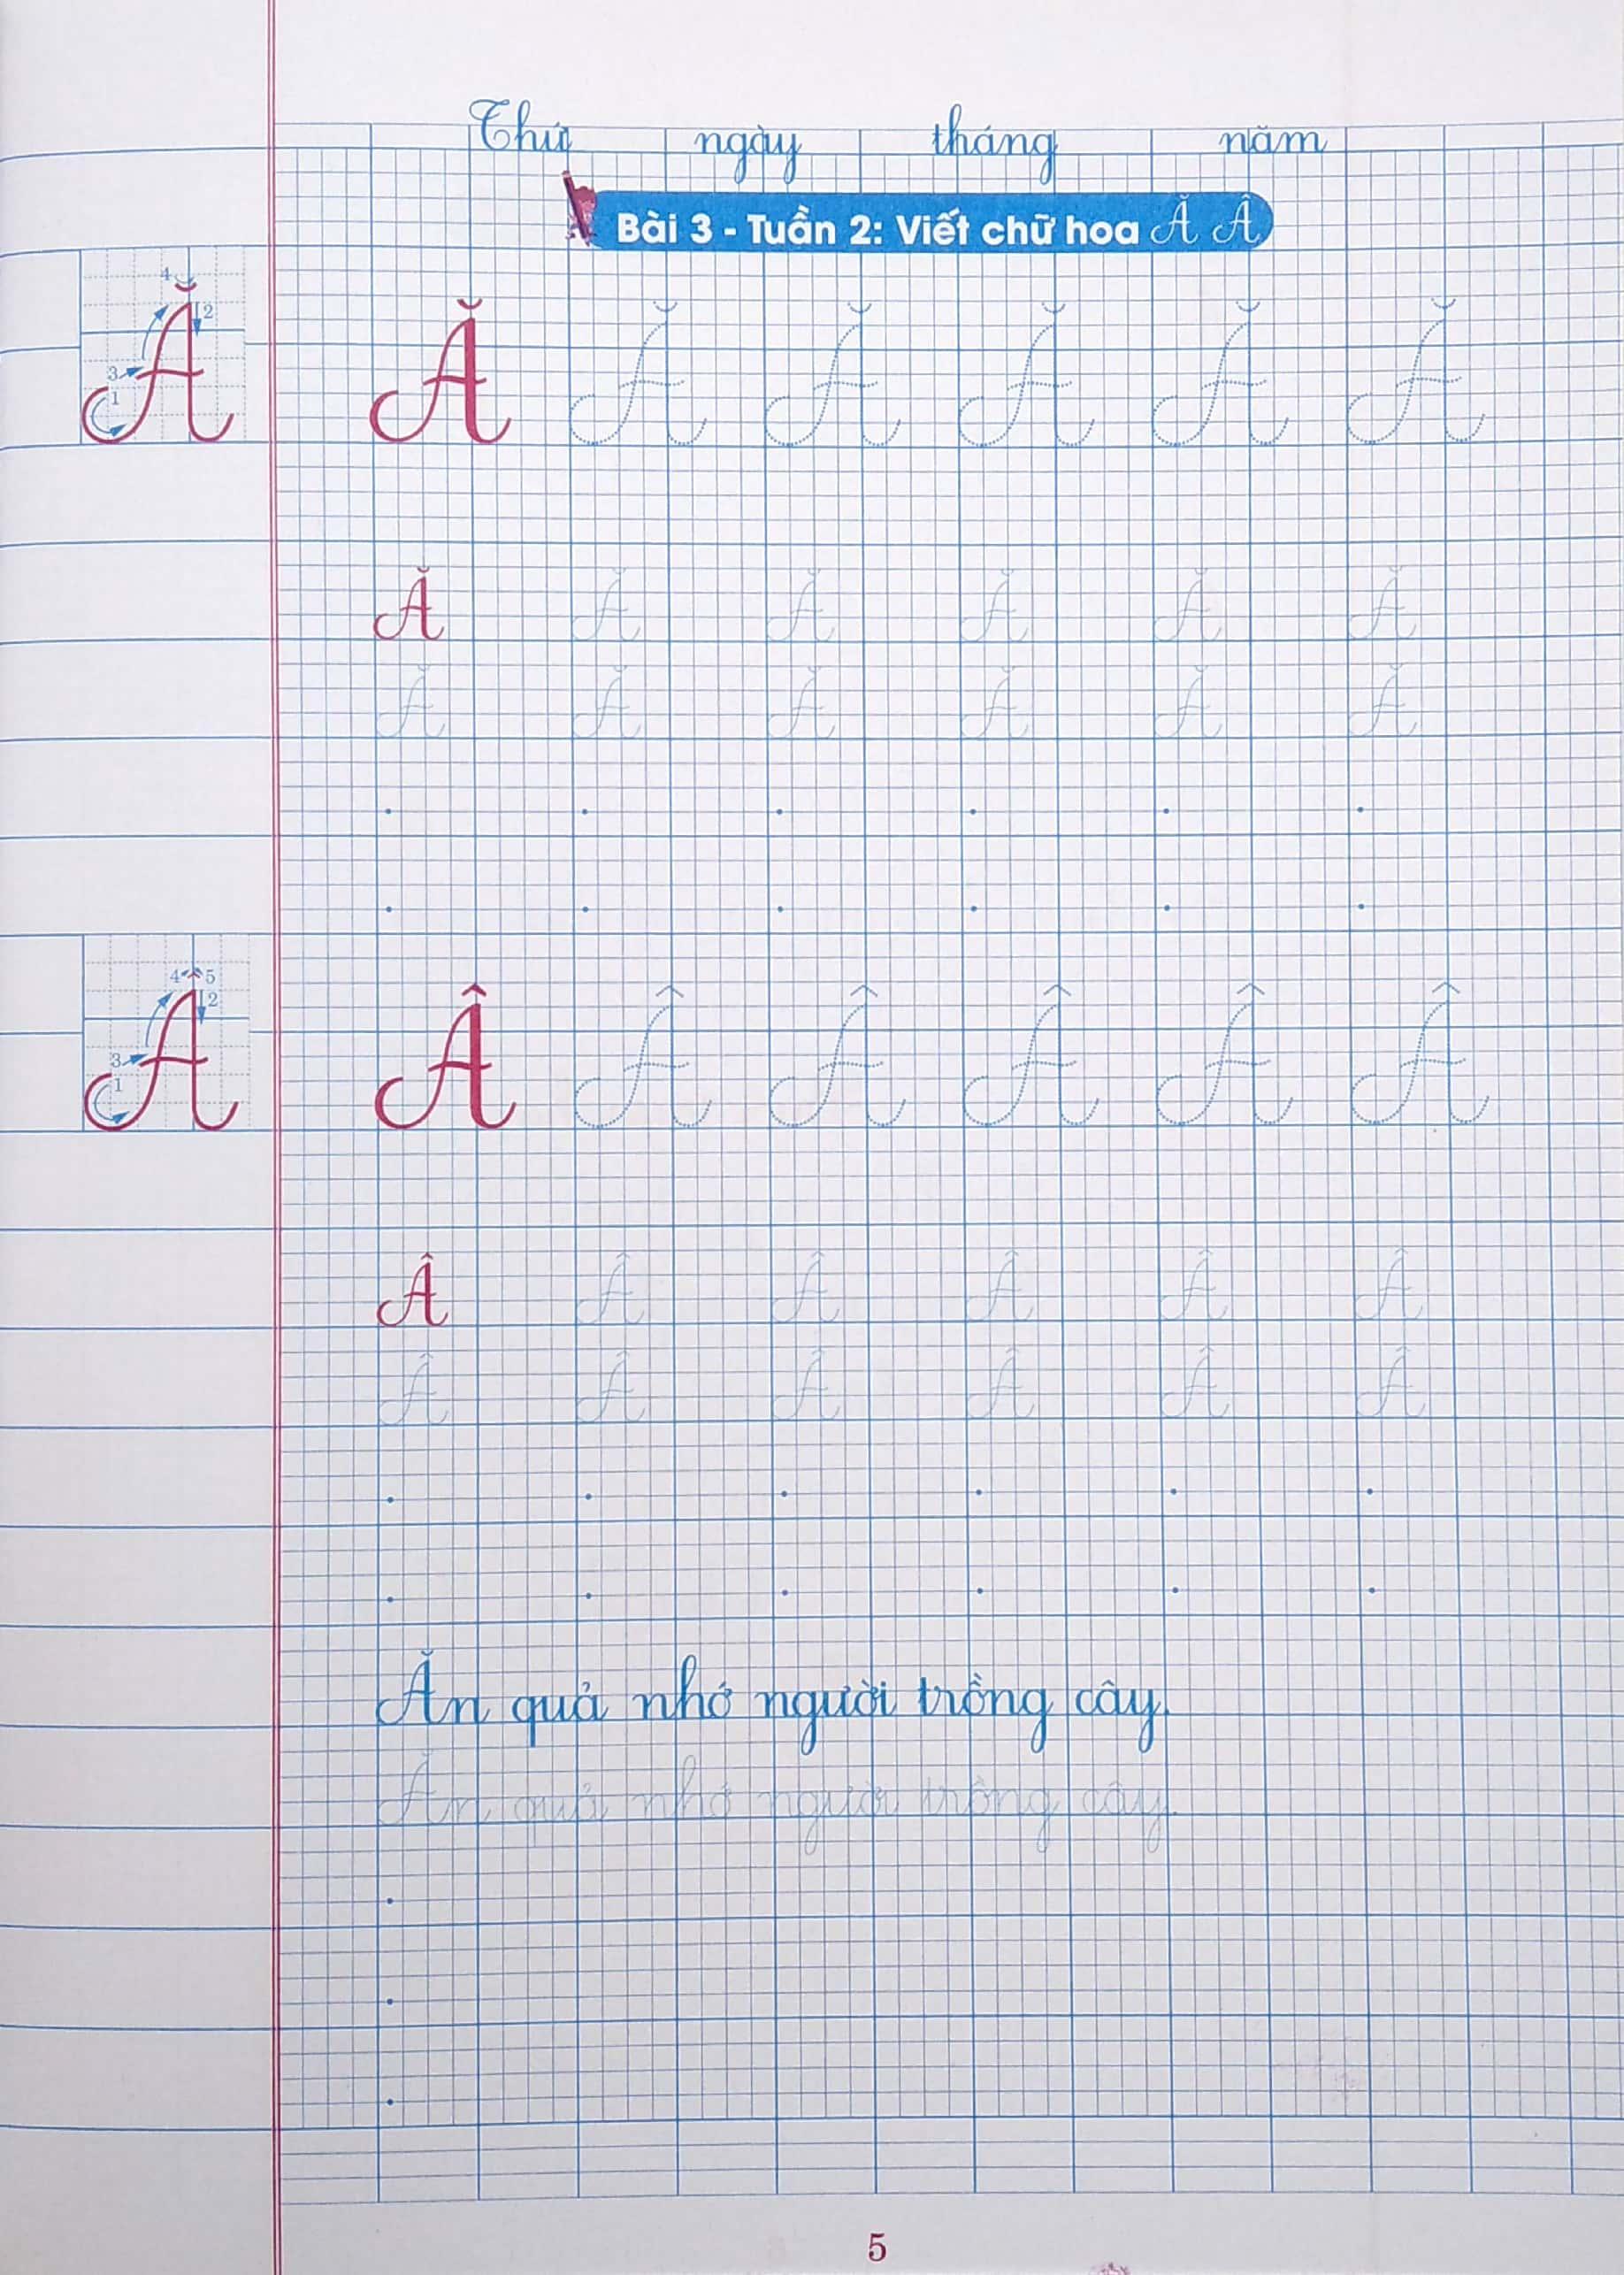 Thứ ngày tháng năm
Bài 3 - Tuần 2: Viết chữ hoa Ă Â
4 2 3 1
Ă Ă Ă Ă Ă Ă
Ă Ă Ă Ă Ă Ă
Ă Ă Ă Ă Ă Ă
4 5 2 3 1
Â Â Â Â Â Â
Â Â Â Â Â Â
Â Â Â Â Â Â
Ăn quả nhớ người trồng cây.
Ăn quả nhớ người trồng cây.
5